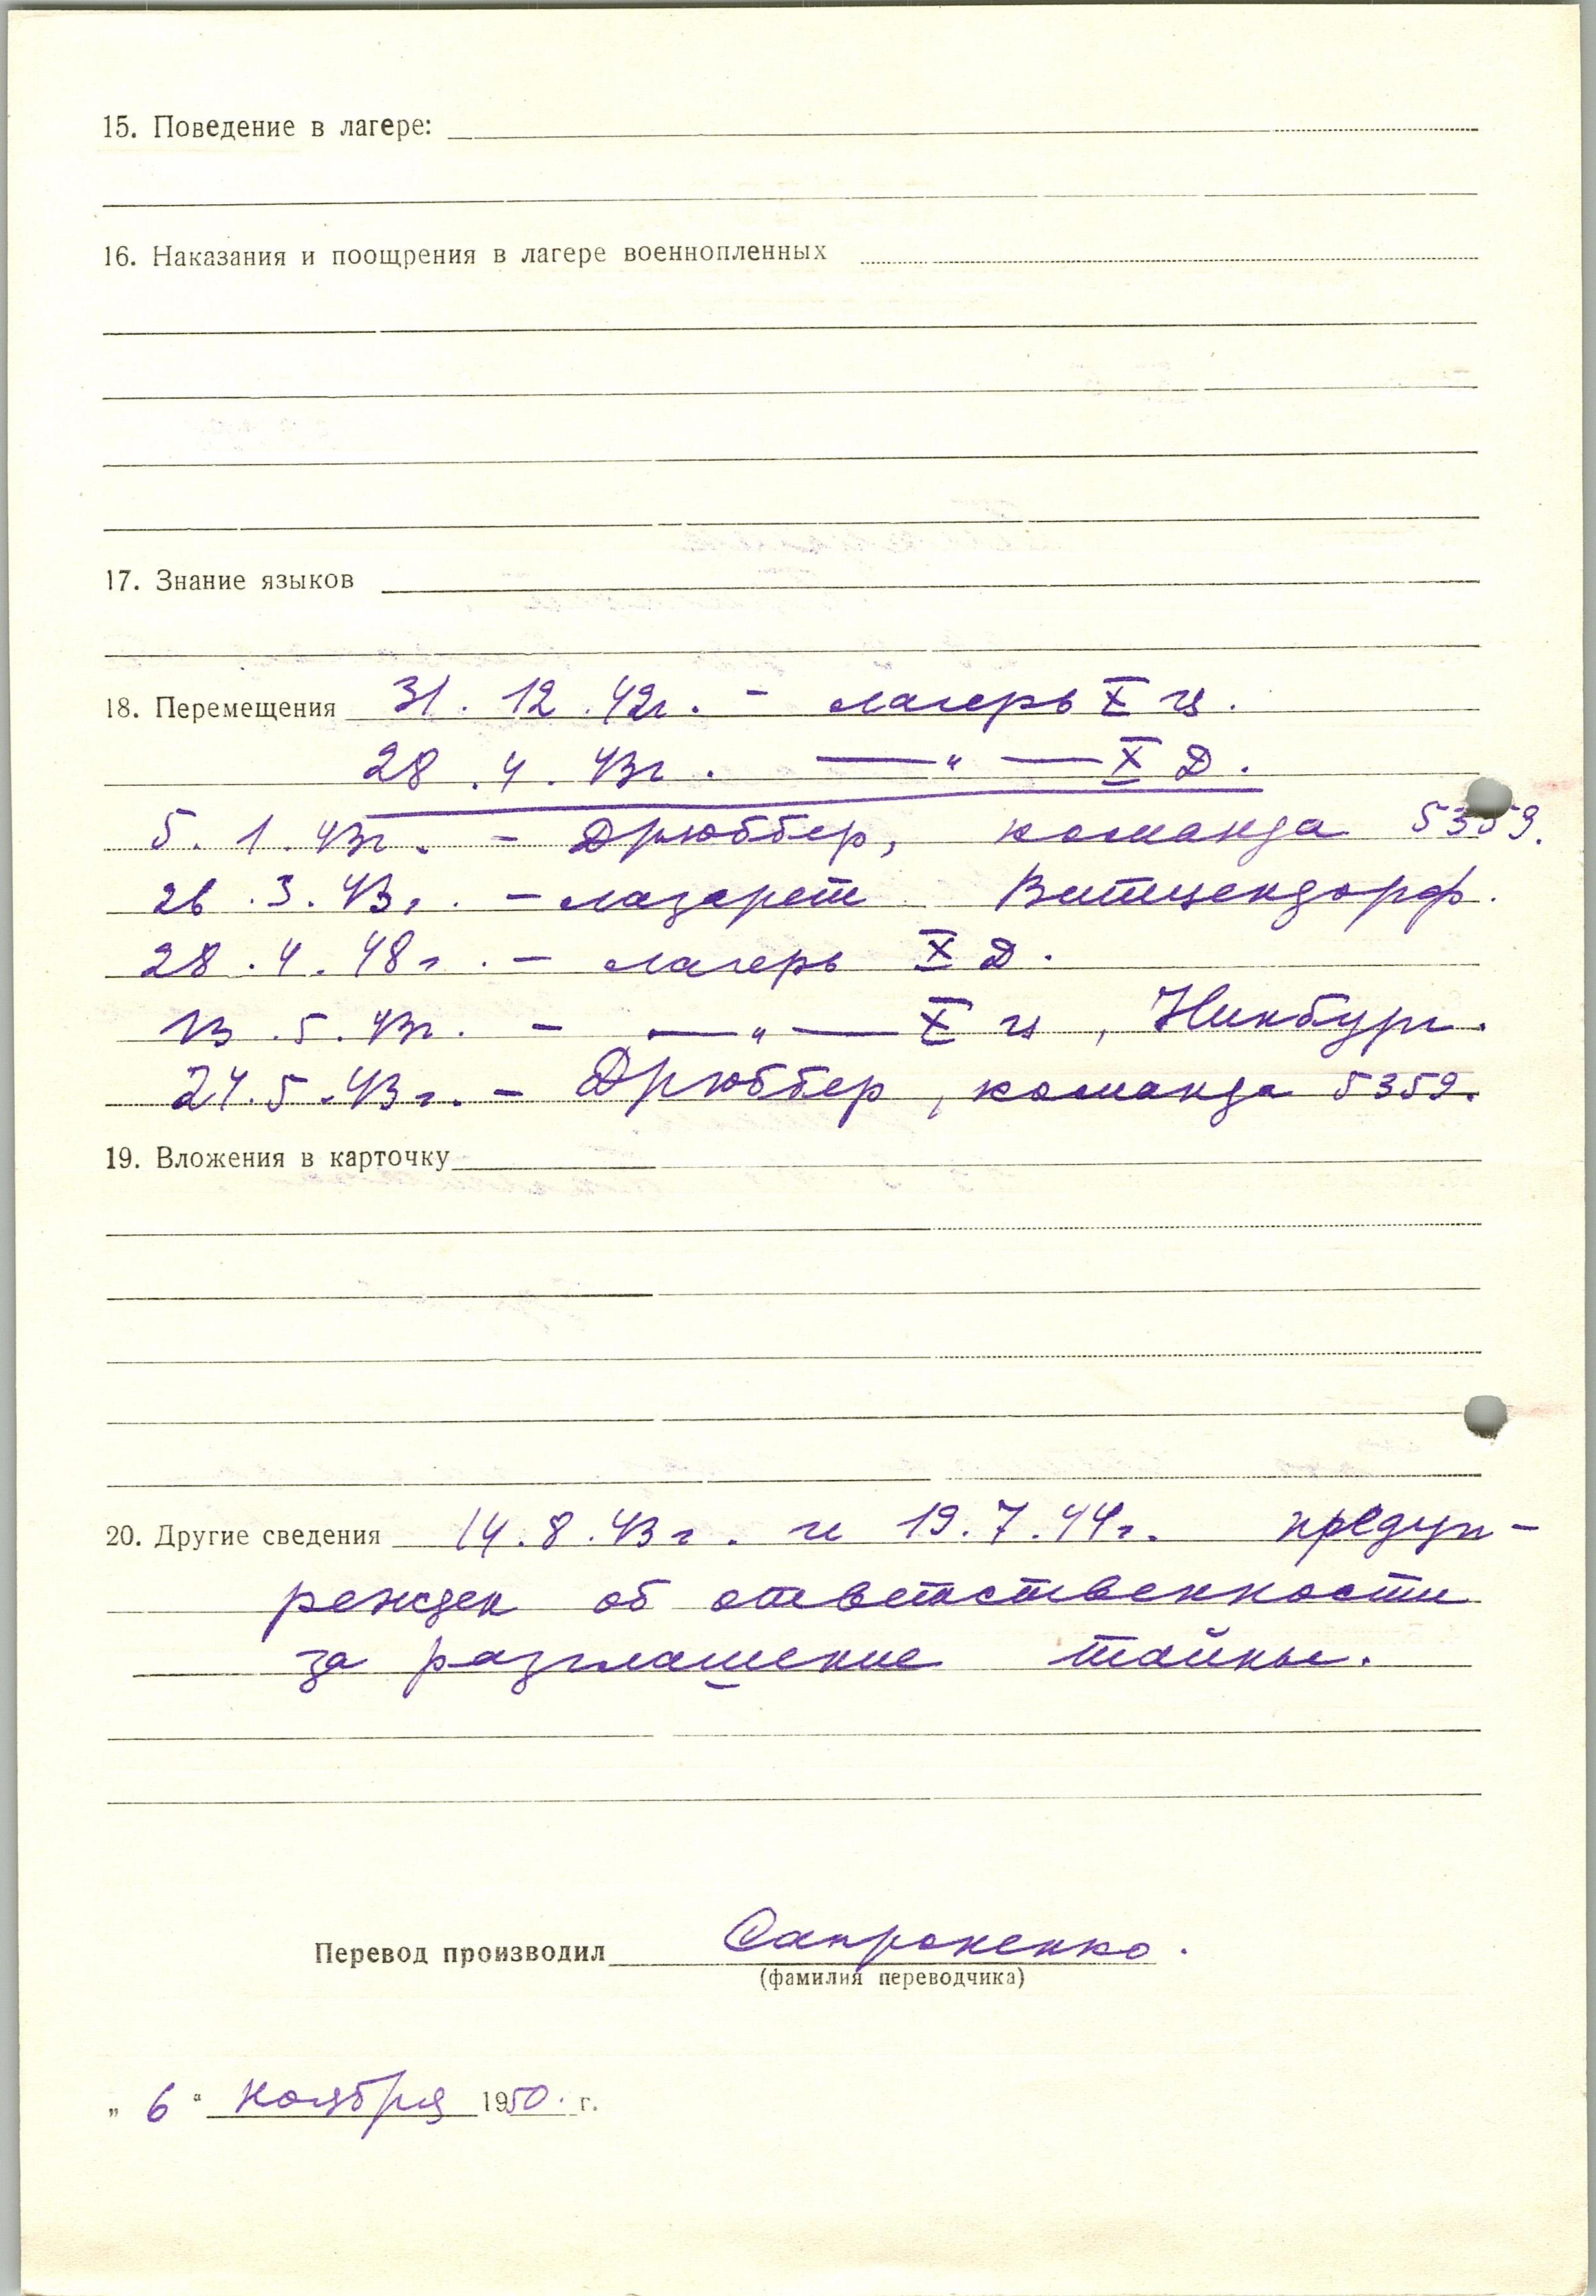 15. Поведение в лагере:
16. Наказания и поощрения в лагере военнопленных
17. Знание языков
18. Перемещения 31. 12. 42г. - лагерь X ц.
28. 4. 43г. — " — X Д.
5. 1. 43г. - Дрюббер, команда 5359.
26. 3. 43г. - лазарет Витцендорф.
28. 4. 48г. - лагерь X Д.
13. 5. 43г. - — " — X ц, Нинбург.
24. 5. 43г. - Дрюббер, команда 5359.
19. Вложения в карточку
20. Другие сведения 14. 8. 43г. и 19. 7. 44г. предуп-
режден об ответственности
за разглашение тайны.
Перевод производил Сапроненко.
(фамилия переводчика)
„ 6 " ноября 1950. г.